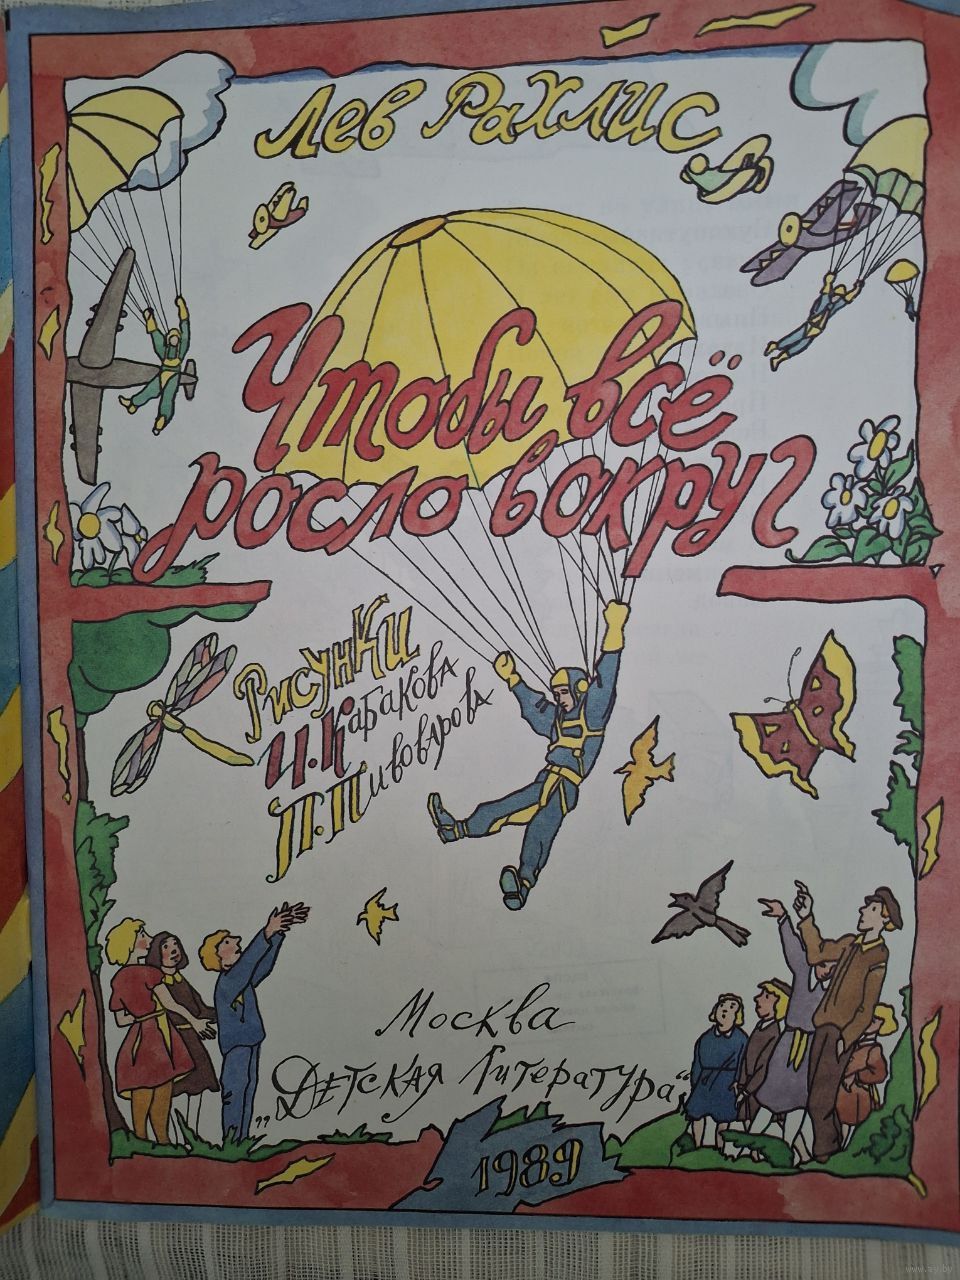 Лев Рахлис
Чтобы всё
росло вокруг
Рисунки
И. Кабакова
П. Пивоварова
Москва
„Детская Литература“
1989
www.ay.by